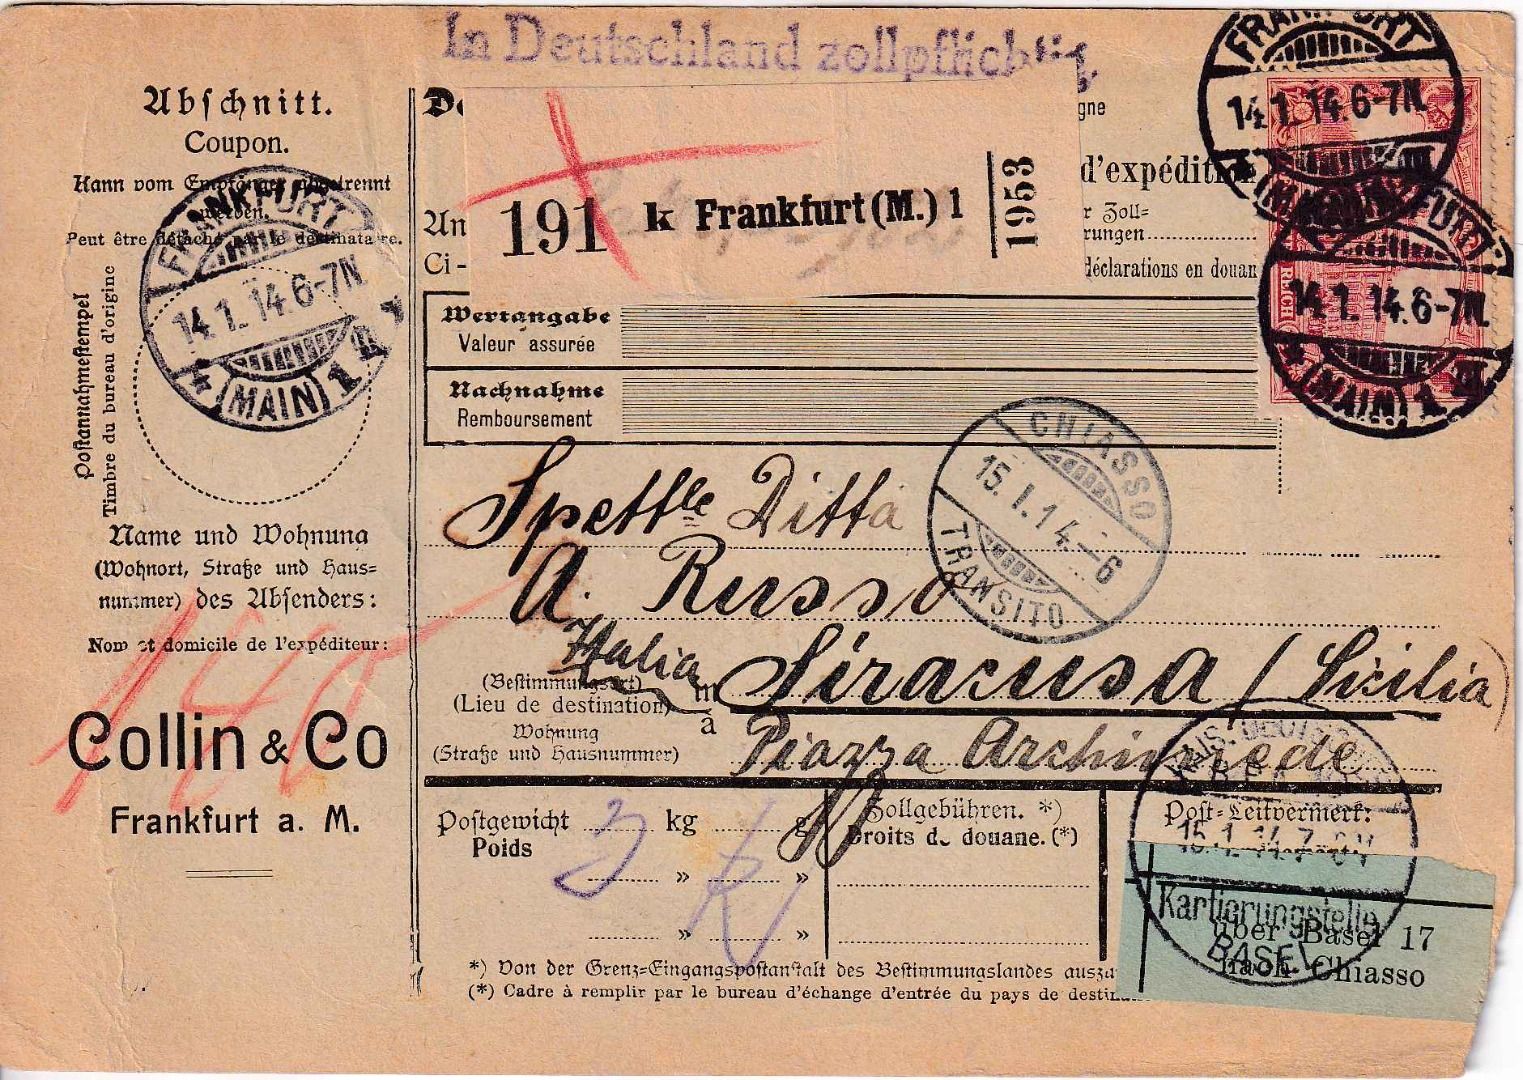 In Deutschland zollpflichtig.
Abschnitt.
Coupon.
Kann vom Empfänger abgetrennt
werden.
Peut être détaché par le destinataire.
Postannahmestempel
Timbre du bureau d'origine
FRANKFURT
14.1.14.6-7N.
(MAIN) 1
Name und Wohnung
(Wohnort, Straße und Haus=
nummer) des Absenders:
Nom et domicile de l'expéditeur:
Collin & Co
Frankfurt a. M.
191 k Frankfurt (M.) 1
1953
gne
d'expédition
r Zoll=
rungen
déclarations en douan
An
Ci-
Wertangabe
Valeur assurée
Nachnahme
Remboursement
FRANKFURT
14.1.14.6-7N.
(MAIN)
FURT
14.1.14.6-7N.
(MAIN) 1
REICH
CHIASSO
15.I.14.-6
TRANSITO
Spettle Ditta
A. Russo
Italia
(Bestimmungsort)
(Lieu de destination)
in
à
Siracusa (Sicilia)
Wohnung
(Straße und Hausnummer)
Piazza Archimede
10
Postgewicht 3 kg g
Poids
" "
" "
Zollgebühren. *)
Droits de douane. (*)
Post=Leitvermerk:
KAIS. DEUTSCHE
15.1.14.7-8V.
Kartierungstelle
BASEL
über Basel 17
nach Chiasso
*) Von der Grenz=Eingangspostanstalt des Bestimmungslandes
(*) Cadre à remplir par le bureau d'échange d'entrée du pays de